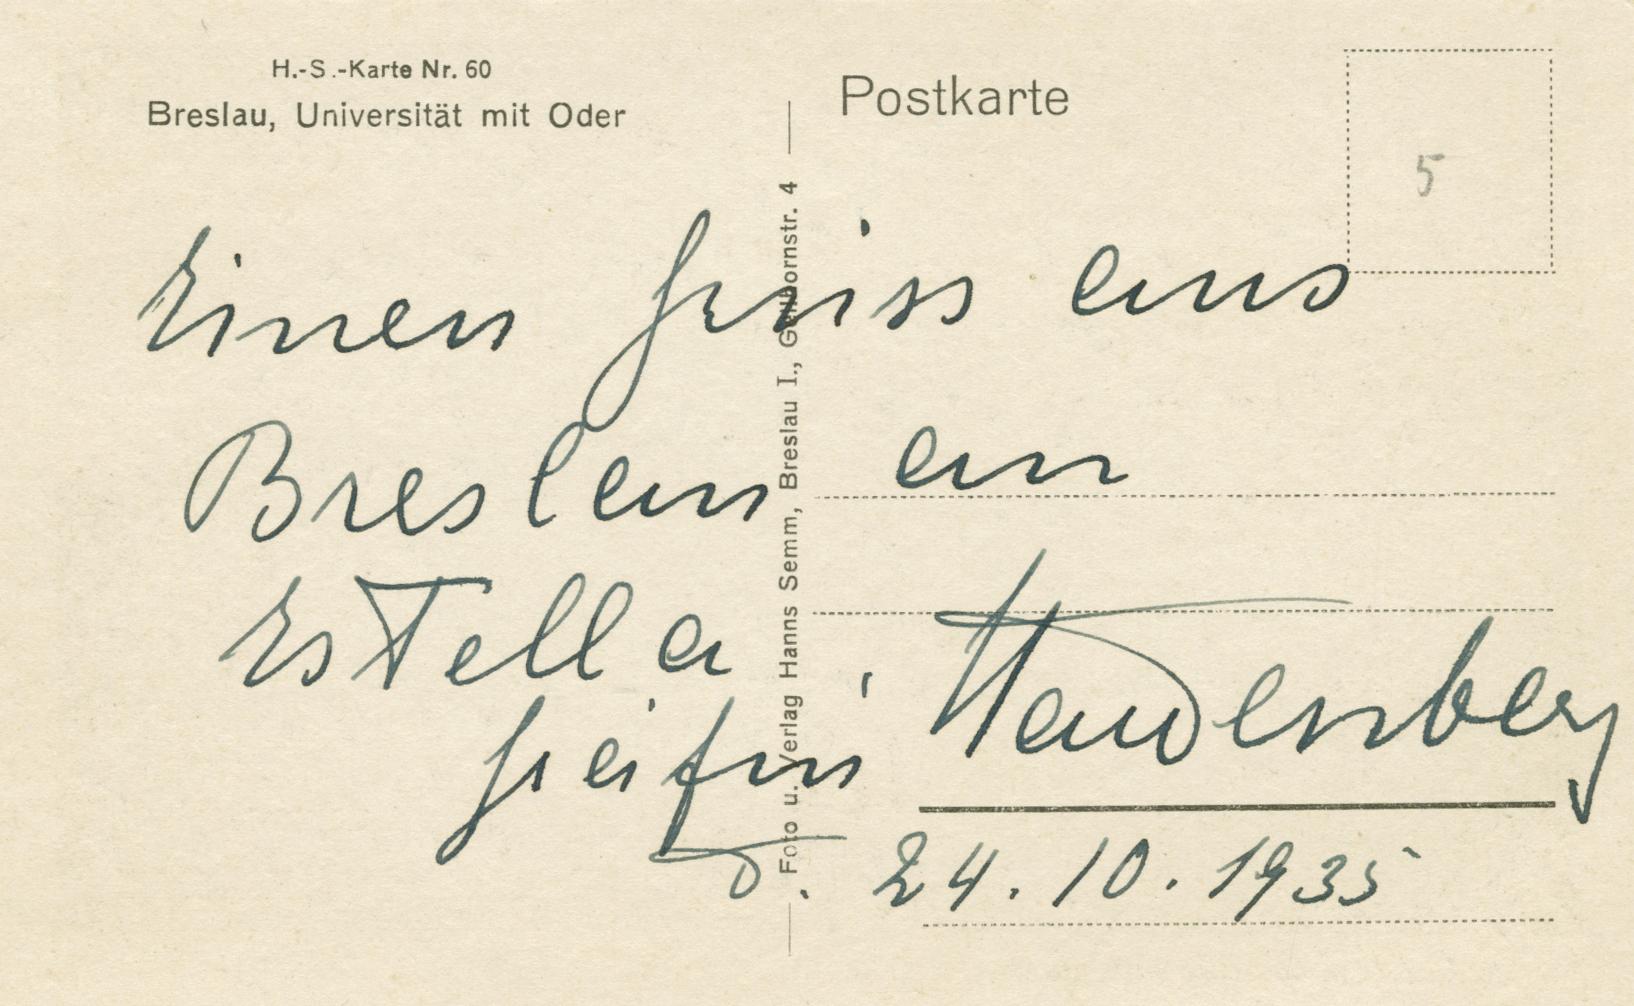 H.-S.-Karte Nr. 60
Breslau, Universität mit Oder
Postkarte
5
Foto u. Verlag Hanns Semm, Breslau I., Gellhornstr. 4
Einen Gruss aus
Breslau an
Estella
d. 24.10.1935